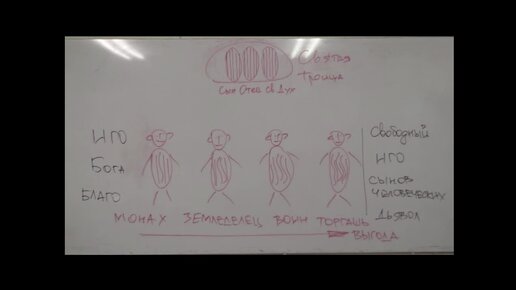 Святая
Троица
Сын Отец Св Дух
Иго
Бога
Благо
Свободный
Иго
сынов
человеческих
Дьявол
Монах Земледелец Воин Торгашь
Выгода